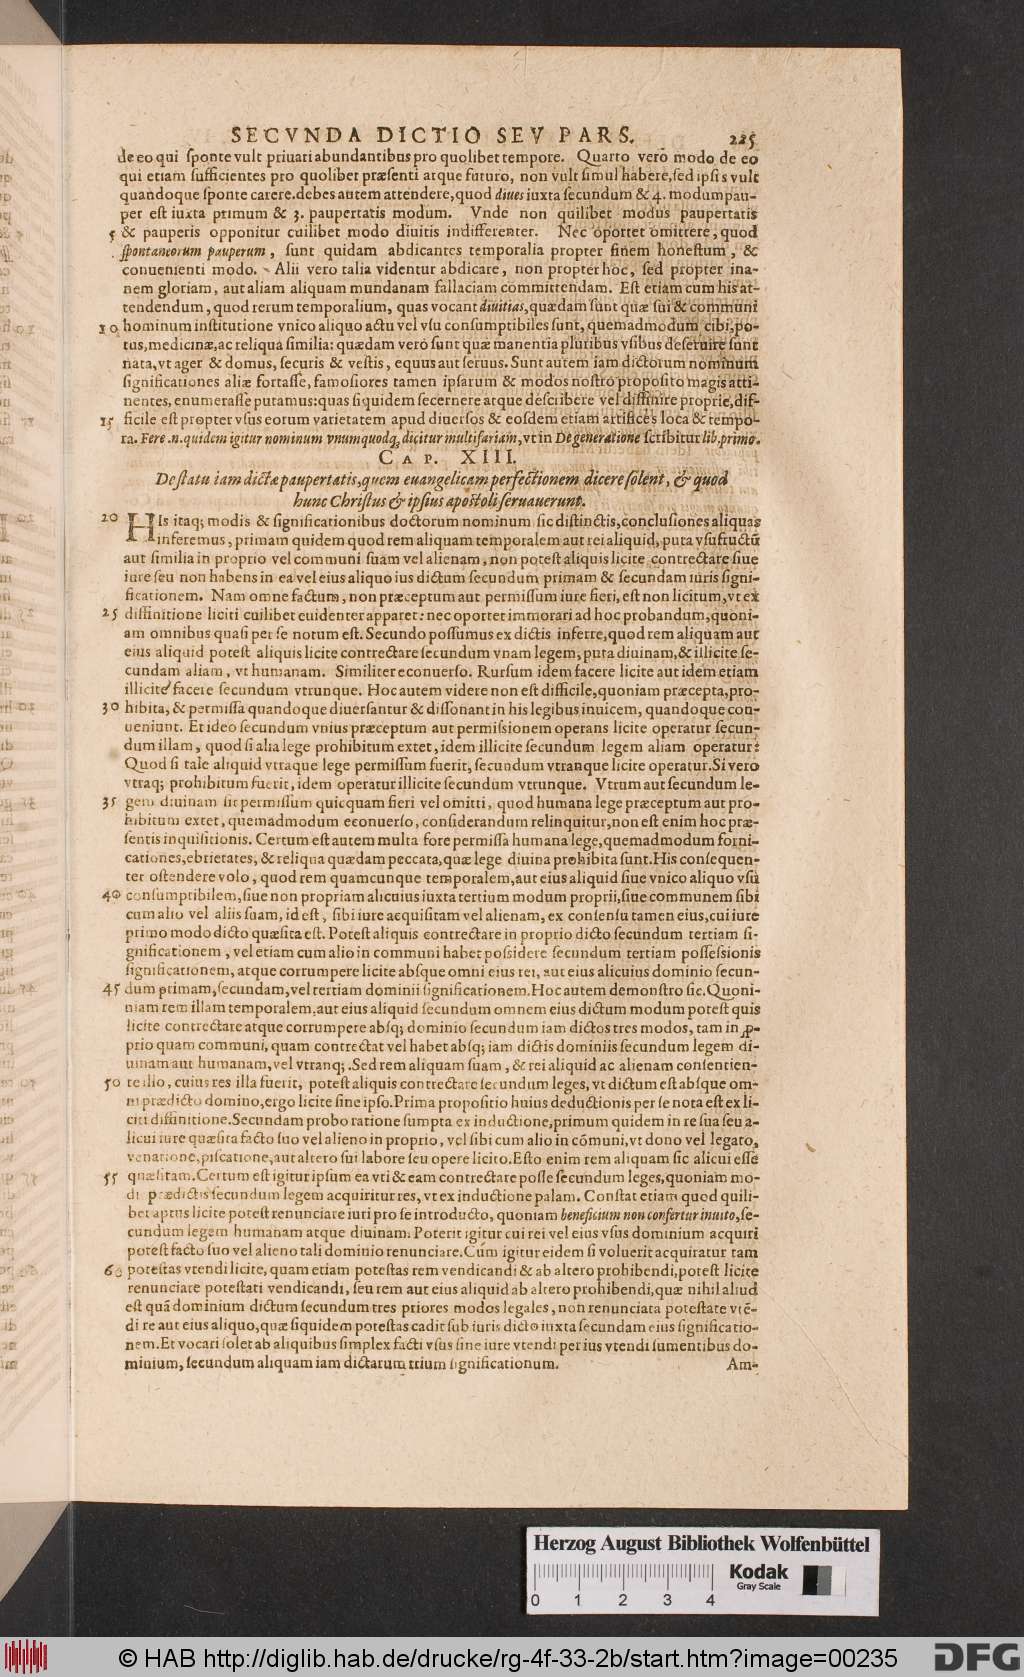 SECVNDA DICTIO SEV PARS. 225
de eo qui sponte vult priuari abundantibus pro quolibet tempore. Quarto verò modo de eo
qui etiam sufficientes pro quolibet præsenti atque futuro, non vult simul habere, sed ipsis vult
quandoque sponte carere. debes autem attendere, quod diues iuxta secundum & 4. modum pau-
per est iuxta primum & 3. paupertatis modum. Vnde non quilibet modus paupertatis
5 & pauperis opponitur cuilibet modo diuitis indifferenter. Nec oportet omittere, quod
spontaneorum pauperum, sunt quidam abdicantes temporalia propter finem honestum, &
conuenienti modo. Alii vero talia videntur abdicare, non propter hoc, sed propter ina-
nem gloriam, aut aliam aliquam mundanam fallaciam committendam. Est etiam cum his at-
tendendum, quod rerum temporalium, quas vocant diuitias, quædam sunt quæ sui & communi
10 hominum institutione vnico aliquo actu vel vsu consumptibiles sunt, quemadmodum cibi, po-
tus, medicinæ, ac reliqua similia: quædam verò sunt quæ manentia pluribus vsibus deseruire sunt
nata, vt ager & domus, securis & vestis, equus aut seruus. Sunt autem iam dictorum nominum
significationes aliæ fortasse, famosiores tamen ipsarum & modos nostro proposito magis atti-
nentes, enumerasse putamus: quas siquidem secernere atque describere vel diffinire proprie, dif-
15 ficile est propter vsus eorum varietatem apud diuersos & eosdem etiam artifices loca & tempo-
ra. Fere .n. quidem igitur nominum vnumquodq; dicitur multifariam, vt in De generatione scribitur lib. primo.
CAP. XIII.
De statu iam dictæ paupertatis, quem euangelicam perfectionem dicere solent, & quod
hunc Christus & ipsius apostoli seruauerunt.
20 HIs itaq; modis & significationibus doctorum nominum sic distinctis, conclusiones aliquas
inferemus, primam quidem quod rem aliquam temporalem aut rei aliquid, puta vsufructū
aut similia in proprio vel communi suam vel alienam, non potest aliquis licite contrectare siue
iure seu non habens in ea vel eius aliquo ius dictum secundum primam & secundam iuris signi-
ficationem. Nam omne factum, non præceptum aut permissum iure fieri, est non licitum, vt ex
25 diffinitione liciti cuilibet euidenter apparet: nec oportet immorari ad hoc probandum, quoni-
am omnibus quasi per se notum est. Secundo possumus ex dictis inferre, quod rem aliquam aut
eius aliquid potest aliquis licite contrectare secundum vnam legem, puta diuinam, & illicite se-
cundam aliam, vt humanam. Similiter econuerso. Rursum idem facere licite aut idem etiam
illicite facere secundum vtrunque. Hoc autem videre non est difficile, quoniam præcepta, pro-
30 hibita, & permissa quandoque diuersantur & dissonant in his legibus inuicem, quandoque con-
ueniunt. Et ideo secundum vnius præceptum aut permissionem operans licite operatur secun-
dum illam, quod si alia lege prohibitum extet, idem illicite secundum legem aliam operatur:
Quod si tale aliquid vtraque lege permissum fuerit, secundum vtranque licite operatur. Si vero
vtraq; prohibitum fuerit, idem operatur illicite secundum vtrunque. Vtrum aut secundum le-
35 gem diuinam sit permissum quicquam fieri vel omitti, quod humana lege præceptum aut pro-
hibitum extet, quemadmodum econuerso, considerandum relinquitur, non est enim hoc præ-
sentis inquisitionis. Certum est autem multa fore permissa humana lege, quemadmodum forni-
cationes, ebrietates, & reliqua quædam peccata, quæ lege diuina prohibita sunt. His consequen-
ter ostendere volo, quod rem quamcunque temporalem, aut eius aliquid siue vnico aliquo vsu
40 consumptibilem, siue non propriam alicuius iuxta tertium modum proprii, siue communem sibi
cum alio vel aliis suam, id est, sibi iure acquisitam vel alienam, ex consensu tamen eius, cui iure
primo modo dicto quæsita est. Potest aliquis contrectare in proprio dicto secundum tertiam si-
gnificationem, vel etiam cum alio in communi habet possidere secundum tertiam possessionis
significationem, atque corrumpere licite absque omni eius rei, aut eius alicuius dominio secun-
45 dum primam, secundam, vel tertiam dominii significationem. Hoc autem demonstro sic. Quoni-
niam rem illam temporalem. aut eius aliquid secundum omnem eius dictum modum potest quis
licite contrectare atque corrumpere absq; dominio secundum iam dictos tres modos, tam in ꝓ-
prio quam communi, quam contrectat vel habet absq; iam dictis dominiis secundum legem di-
uinam aut humanam, vel vtranq; . Sed rem aliquam suam, & rei aliquid ac alienam consentien-
50 te illo, cuius res illa fuerit, potest aliquis contrectare secundum leges, vt dictum est absque om-
ni prædicto domino, ergo licite sine ipso. Prima propositio huius deductionis per se nota est ex li-
citi diffinitione. Secundam probo ratione sumpta ex inductione, primum quidem in re sua seu a-
licui iure quæsita facto suo vel alieno in proprio, vel sibi cum alio in cōmuni, vt dono vel legato,
venatione, piscatione, aut altero sui labore seu opere licito. Esto enim rem aliquam sic alicui esse
55 quæsitam. Certum est igitur ipsum ea vti & eam contrectare posse secundum leges, quoniam mo-
di prædictis secundum legem acquiritur res, vt ex inductione palam. Constat etiam quod quili-
bet aptus licite potest renunciare iuri pro se introducto, quoniam beneficium non confertur inuito, se-
cundum legem humanam atque diuinam. Poterit igitur cui rei vel eius vsus dominium acquiri
potest facto suo vel alieno tali dominio renunciare. Cùm igitur eidem si voluerit acquiratur tam
60 potestas vtendi licite, quam etiam potestas rem vendicandi & ab altero prohibendi, potest licite
renunciare potestati vendicandi, seu rem aut eius aliquid ab altero prohibendi, quæ nihil aliud
est quā dominium dictum secundum tres priores modos legales, non renunciata potestate vtē-
di re aut eius aliquo, quæ siquidem potestas cadit sub iuris dicto iuxta secundam eius significatio-
nem. Et vocari solet ab aliquibus simplex facti vsus sine iure vtendi per ius vtendi sumentibus do-
minium, secundum aliquam iam dictarum trium significationum. Am-
Herzog August Bibliothek Wolfenbüttel
Kodak
Gray Scale
0 1 2 3 4
© HAB http://diglib.hab.de/drucke/rg-4f-33-2b/start.htm?image=00235
DFG